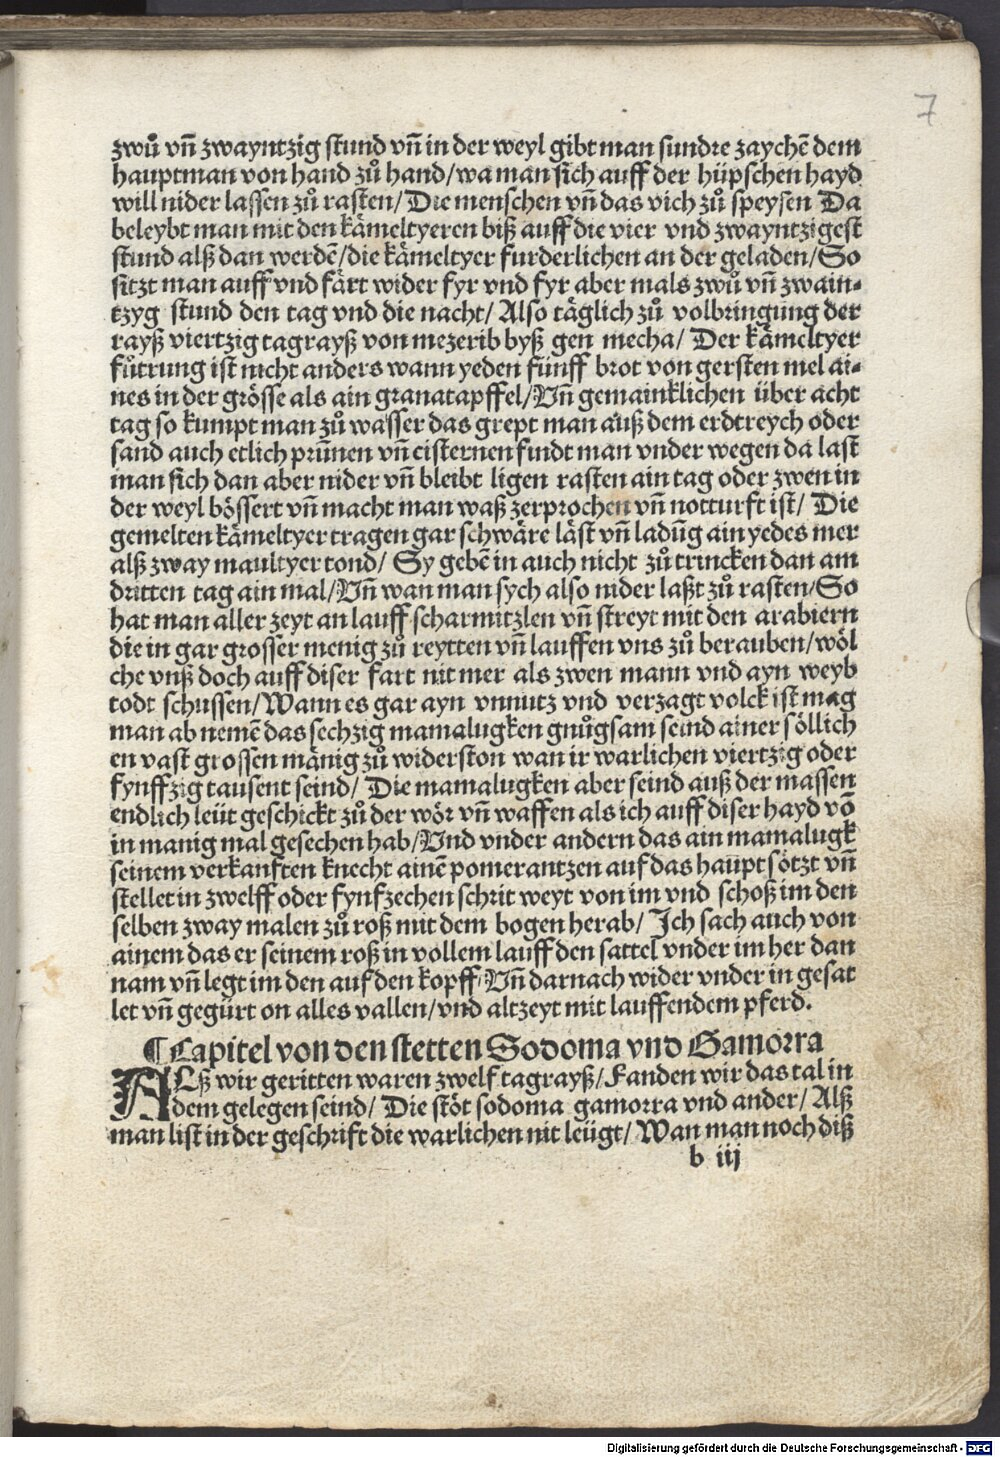 7
zwů vñ zwayntzig stund vñ in der weyl gibt man sundre zaychẽ dem
hauptman von hand zů hand/wa man sich auff der hüpschen hayd
will nider lassen zů rasten/ Die menschen vñ das vich zů speysen Da
beleybt man mit den kämeltyeren biß auff die vier vnd zwayntzigest
stund alß dan werdẽ/die kämeltyer furderlichen an der geladen/So
sitzt man auff vnd färt wider fyr vnd fyr aber mals zwů vñ zwain-
tzyg stund den tag vnd die nacht/ Also täglich zů volbringung der
rayß viertzig tagrayß von mezerib byß gen mecha/ Der kämeltyer
fůtrung ist nicht anders wann yeden fünff brot von gersten mel ai-
nes in der grösse als ain granatapffel/Vñ gemainklichen über acht
tag so kumpt man zů wasser das grept man auß dem erdtreych oder
sand auch etlich prũnen vñ cisternen findt man vnder wegen da last
man sich dan aber nider vñ bleibt ligen rasten ain tag oder zwen in
der weyl bössert vñ macht man waß zerprochen vñ notturft ist/ Die
gemelten kämeltyer tragen gar schwäre läst vñ ladũg ain yedes mer
alß zway maultyer tond/ Sy gebẽ in auch nicht zů trincken dan am
dritten tag ain mal/Vñ wan man sych also nider laßt zů rasten/So
hat man aller zeyt an lauff scharmitzlen vñ streyt mit den arabiern
die in gar grosser menig zů reytten vñ lauffen vns zů berauben/wöl
che vnß doch auff diser fart nit mer als zwen mann vnd ayn weyb
todt schussen/Wann es gar ayn vnnutz vnd verzagt volck ist mag
man ab nemẽ das sechzig mamalugken gnůgsam seind ainer söllich
en vast grossen mänig zů widerston wan ir warlichen viertzig oder
fynffzig tausent seind/ Die mamalugken aber seind auß der massen
endlich leüt geschickt zů der wör vñ waffen als ich auff diser hayd võ
in manig mal gesechen hab/Vnd vnder andern das ain mamalugk
seinem verkanften knecht ainẽ pomerantzen auf das haupt sötzt vñ
stellet in zwelff oder fynfzechen schrit weyt von im vnd schoß im den
selben zway malen zů roß mit dem bogen herab/ Ich sach auch von
ainem das er seinem roß in vollem lauff den sattel vnder im her dan
nam vñ legt im den auf den kopff/Vñ darnach wider vnder in gesat
let vñ gegürt on alles vallen/vnd altzeyt mit lauffendem pferd.
¶ Capitel von den stetten Sodoma vnd Gamorra
ALß wir geritten waren zwelf tagrayß/Fanden wir das tal in
dem gelegen seind/ Die stöt sodoma gamorra vnd ander/ Alß
man list in der geschrift die warlichen nit leügt/ Wan man noch diß
b iij
Digitalisierung gefördert durch die Deutsche Forschungsgemeinschaft - DFG